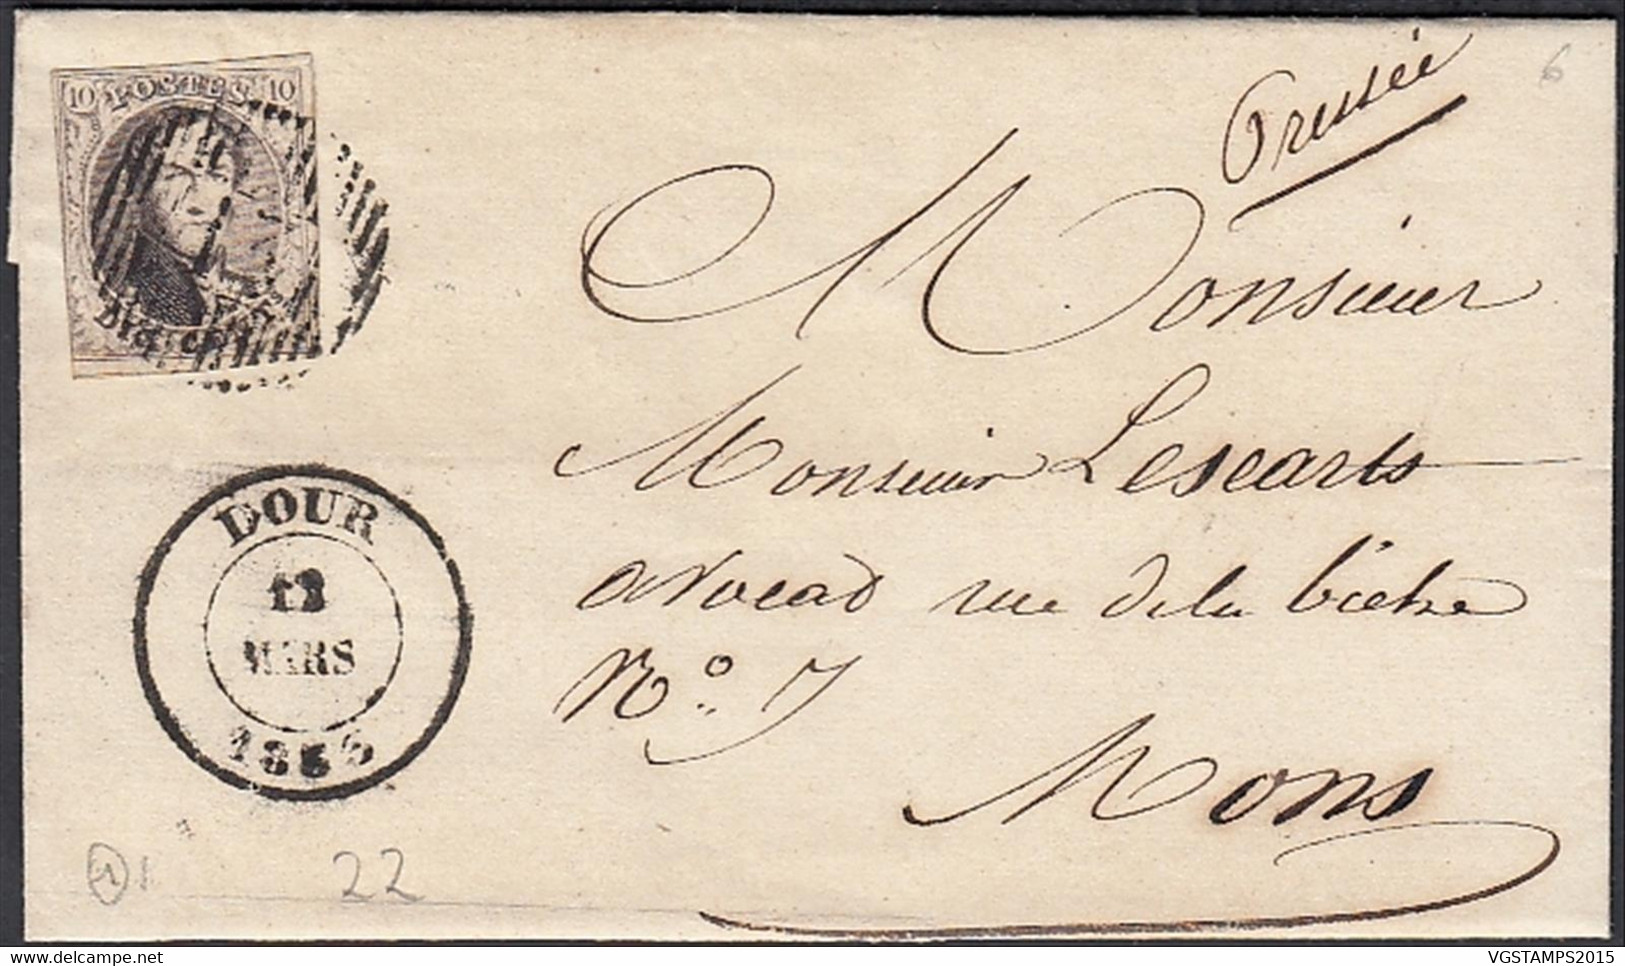 10 POSTES 10
DIX CENTS
Pressée
6
Monsieur
Monsieur Lescarts
avocat rue de la biche
N° 7
Mons
DOUR
12
MARS
1 1
22
www.delcampe.net
VGSTAMPS2015